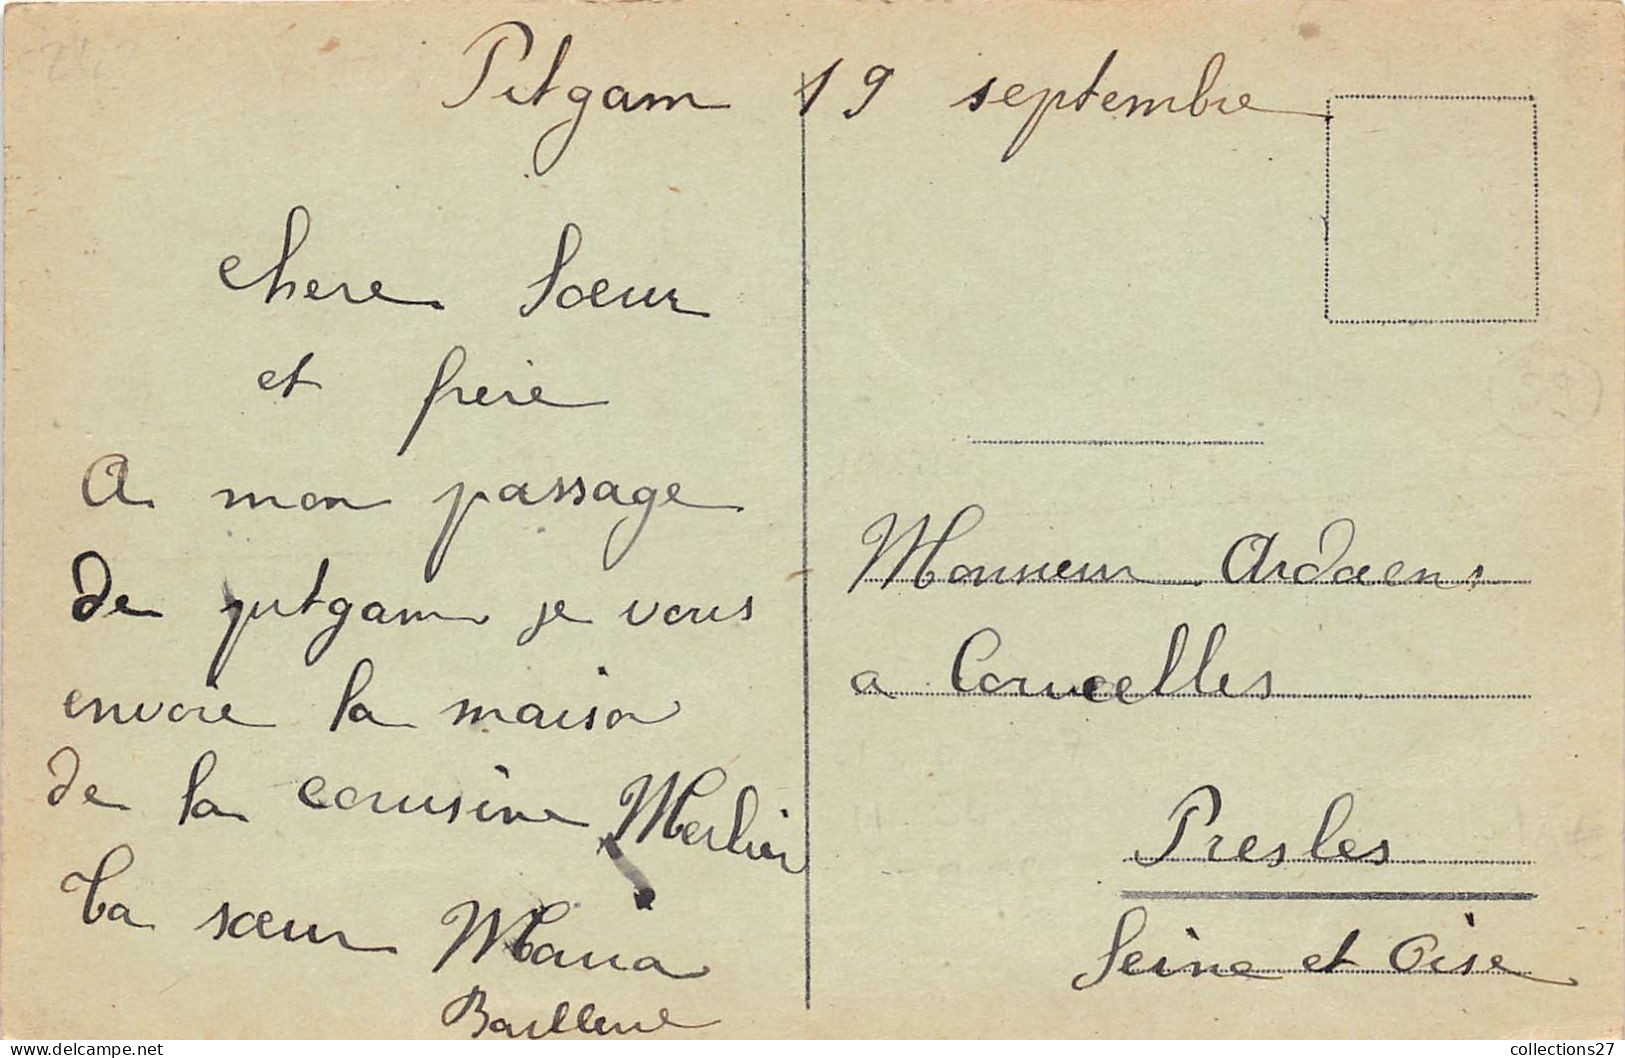 Pitgam 19 septembre
chere Sœur
et frere
A mon passage
de pitgam je vous
envoie la maison
de la cousine
Ta sœur Maria
Monsieur Ardaens
a Courcelles
Presles
Seine et Oise
collections27